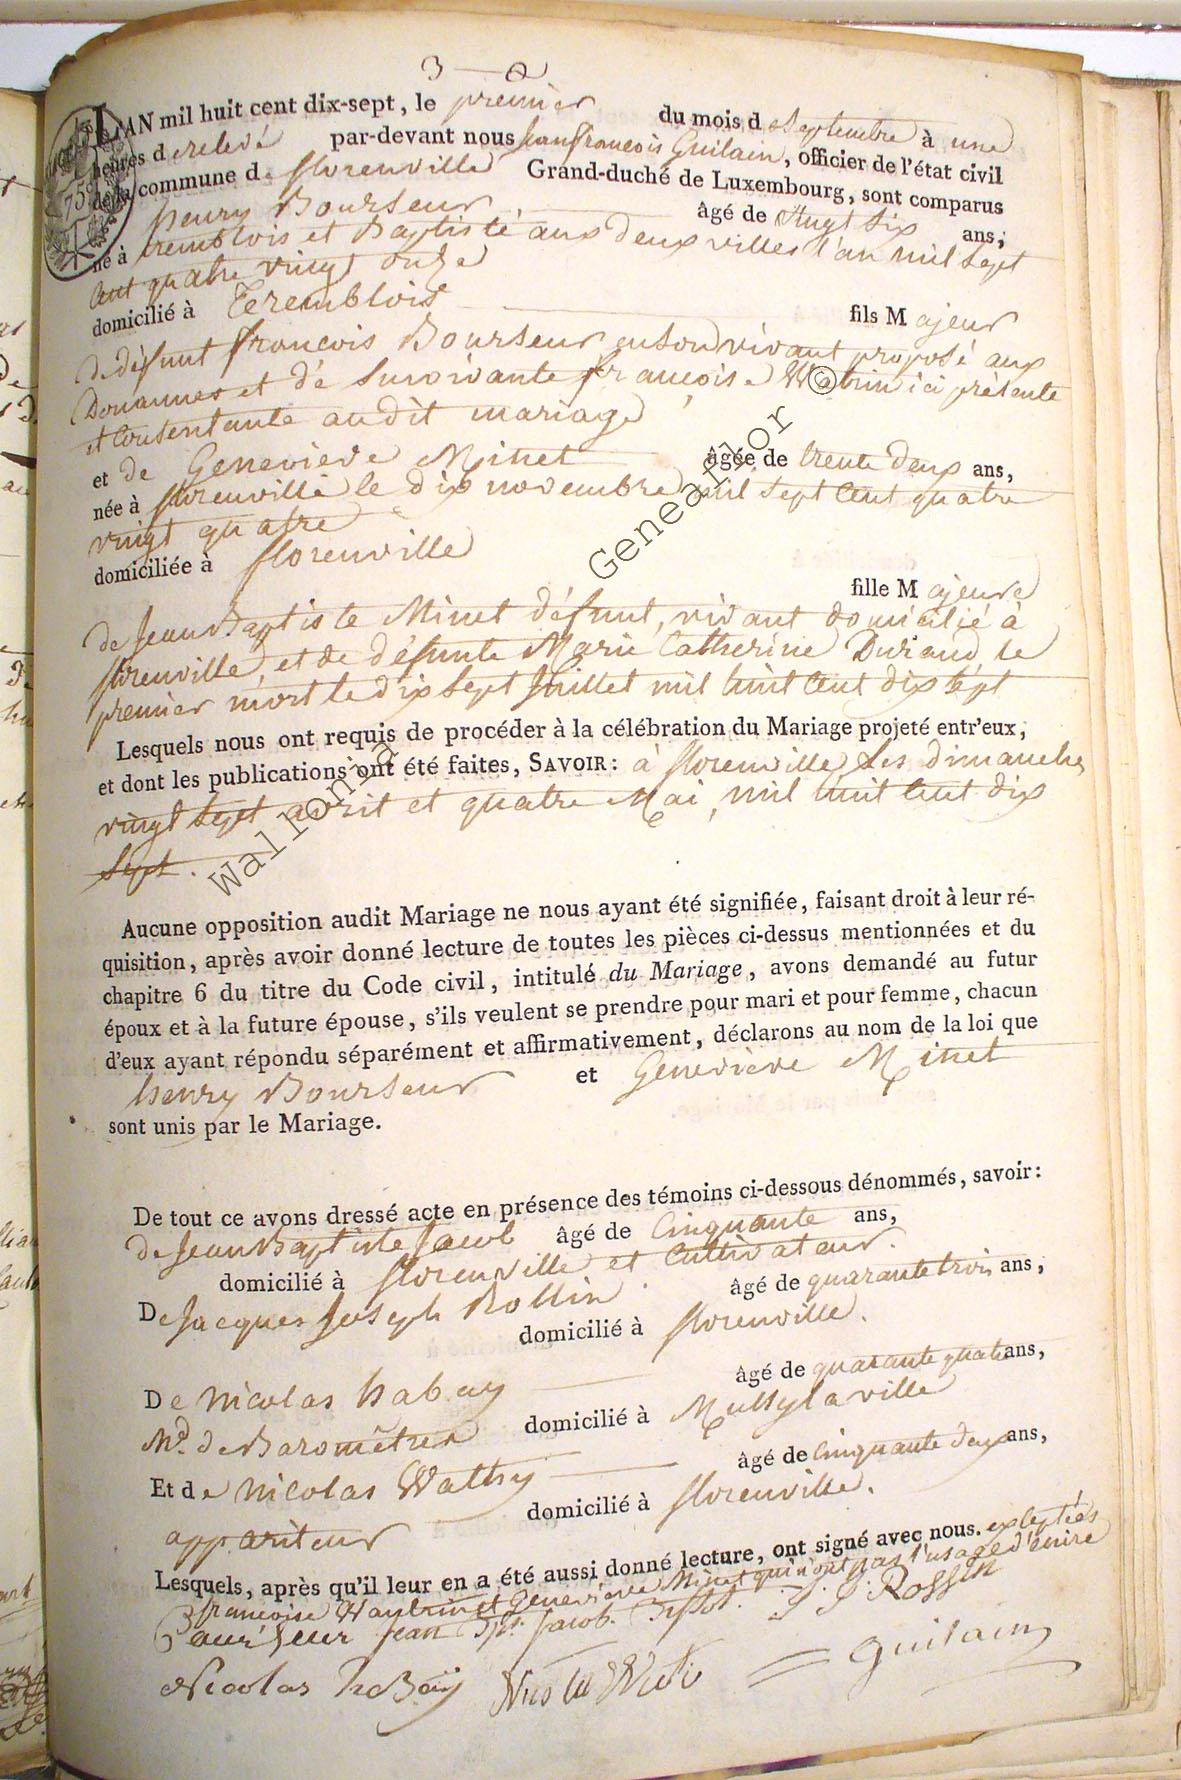 3
L'AN mil huit cent dix-sept, le premier du mois d e Septembre à une
heures d e relevé par-devant nous Jean françois Guilain, officier de l'état civil
de la commune d e florenville Grand-duché de Luxembourg, sont comparus
henry Bourseur âgé de Vingt Six ans,
né à tremblois et Baptisté aux deux villes l'an mil Sept
Cent quatre vingt onze
domicilié à Teremblois fils M ajeur
de défunt françois Bourseur en son vivant proposé aux
Douannes et de Survivante françoise Watrin ici présente
et Consentante audit mariage
et de Geneviève Minet âgée de trente deux ans,
née à florenville le dix novembre mil Sept Cent quatre
vingt quatre
domiciliée à florenville
fille M ajeure
de Jean Baptiste Minet défunt, vivant domicilié à
florenville, et de défunte Marie Catherine Durand, le
premier mort le dix Sept Juillet mil huit Cent dix Sept
Lesquels nous ont requis de procéder à la célébration du Mariage projeté entr'eux,
et dont les publications ont été faites, SAVOIR: à florenville les dimanches
vingt Sept avril et quatre Mai, mil huit Cent dix
Sept.
Aucune opposition audit Mariage ne nous ayant été signifiée, faisant droit à leur ré-
quisition, après avoir donné lecture de toutes les pièces ci-dessus mentionnées et du
chapitre 6 du titre du Code civil, intitulé du Mariage, avons demandé au futur
époux et à la future épouse, s'ils veulent se prendre pour mari et pour femme, chacun
d'eux ayant répondu séparément et affirmativement, déclarons au nom de la loi que
henry Bourseur et Geneviève Minet
sont unis par le Mariage.
De tout ce avons dressé acte en présence des témoins ci-dessous dénommés, savoir:
de Jean Baptiste Jacob âgé de Cinquante ans,
domicilié à florenville et Cultivateur.
De Jacques Joseph Rollin âgé de quarante trois ans,
domicilié à florenville.
De nicolas habay âgé de quarante quatre ans,
Md. de Baromêtres domicilié à Mussy la ville
Et d e nicolas Wathy âgé de Cinquante deux ans,
appariteur domicilié à florenville.
Lesquels, après qu'il leur en a été aussi donné lecture, ont signé avec nous. exceptées
françoise Wautrin et Geneviève Minet qui n'ont pas l'usage d'écrire
Bourseur jean Bpt. Jacob. J J Rossin
Nicolas haBaÿ Nicolas Guilain
Wallonia Geneaflor ©
75